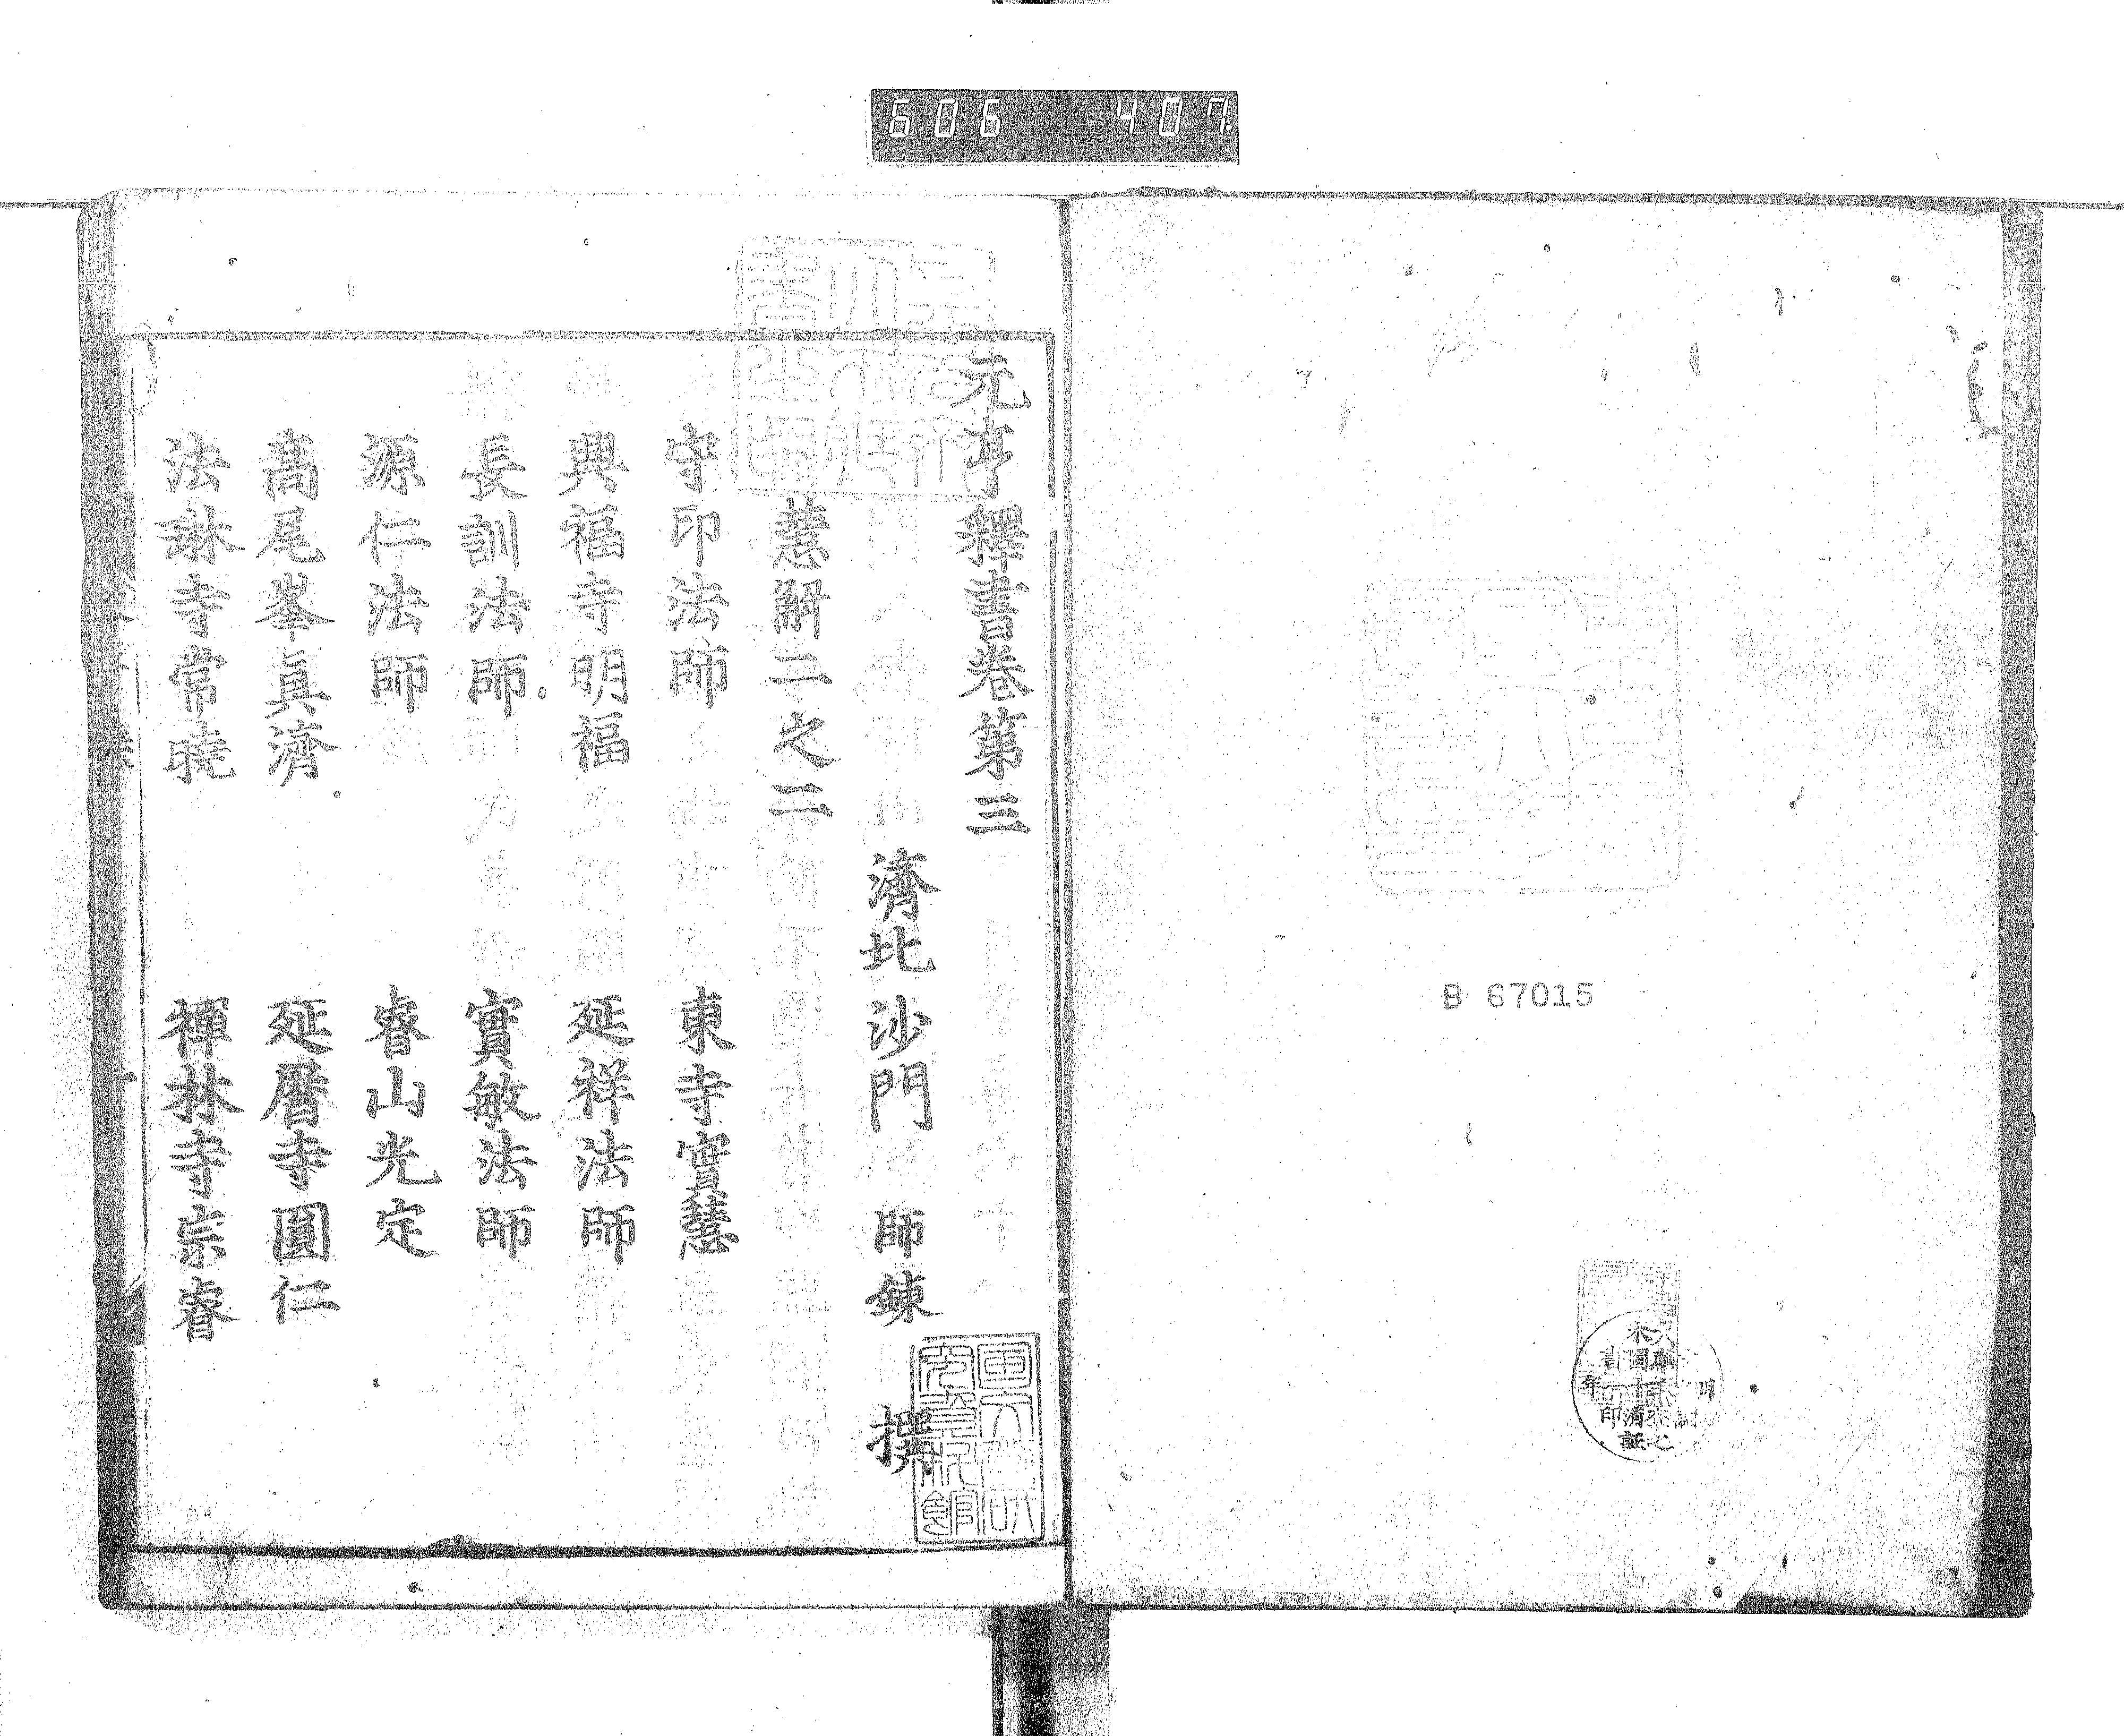 606 407
B 67015
元亨釋書卷第三
濟北沙門 師錬 撰
慧解二之二
守印法師 東寺實慧
興福寺明福 延祥法師
長訓法師 實敏法師
源仁法師 睿山光定
高尾峯眞濟 延曆寺圓仁
法琳寺常曉 禪林寺宗睿